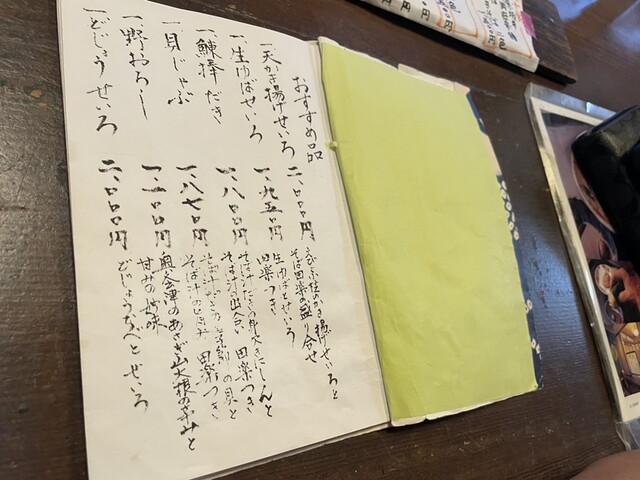 おすすめ品
一天かき揚げせいろ 二、〇〇〇円
かき揚げせいろと
そば田楽の盛り合せ
一、生ゆばせいろ 一、九五〇円
生ゆばとせいろ
田楽つき
一鰊棒だき 一、八〇〇円
そば汁だきの身欠きにしんと
そば汁の出合い 田楽つき
一貝じゃぶ 一、八七〇円
の貝と
田楽つき
一野おろし 一、一〇〇円
奥会津のあざき大根の辛みと
甘みの妙味
一どじょうせいろ 二、〇〇〇円
どじょうなべとせいろ